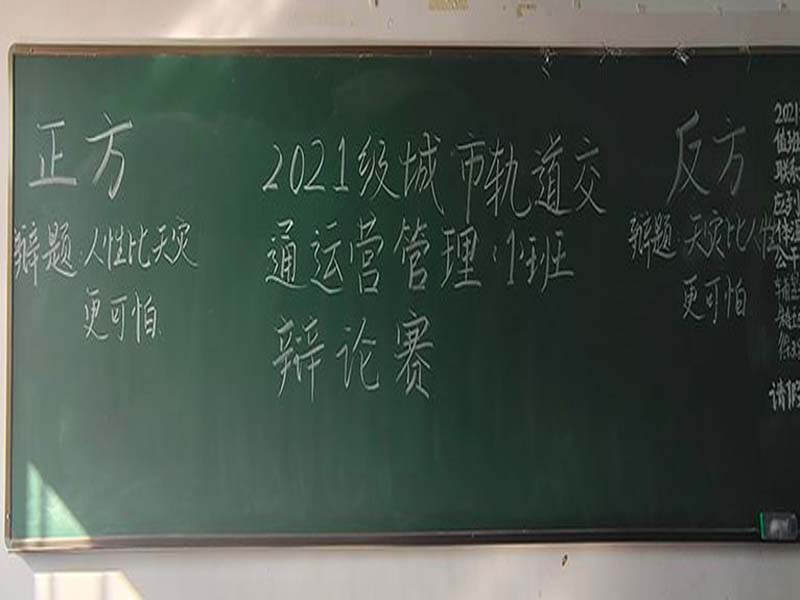 正方
辩题:人性比天灾
更可怕
2021级城市轨道交
通运营管理:1班
辩论赛
反方
辩题:天灾比人性
更可怕
2021
值班
请假